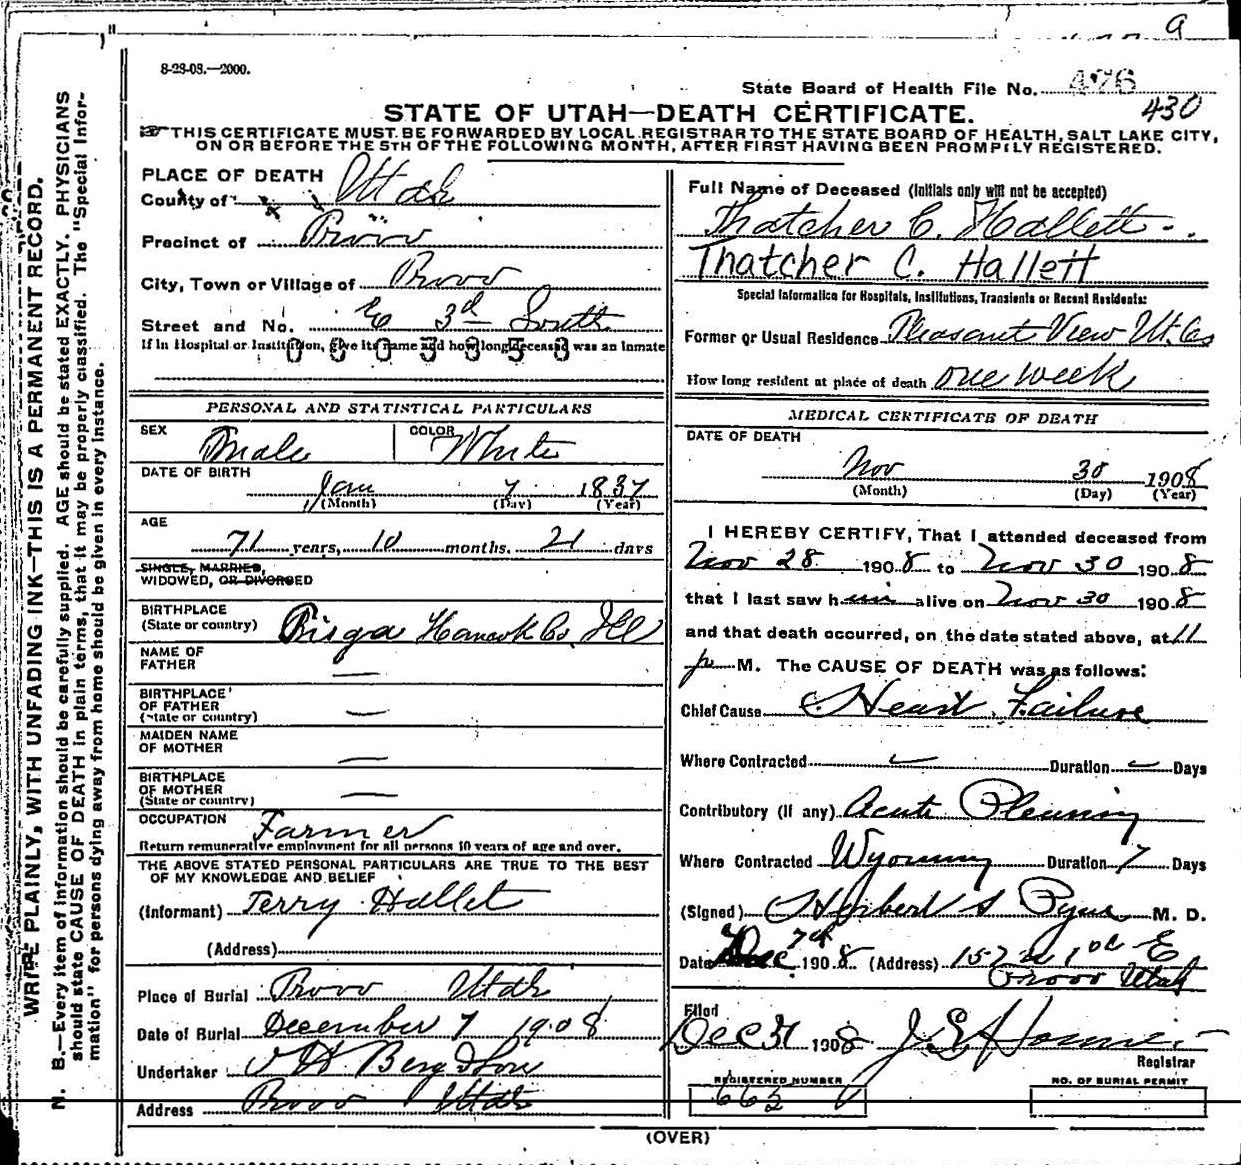 9
8-28-08.—2000.
State Board of Health File No. 476
430
STATE OF UTAH—DEATH CERTIFICATE.
☞THIS CERTIFICATE MUST BE FORWARDED BY LOCAL REGISTRAR TO THE STATE BOARD OF HEALTH, SALT LAKE CITY,
ON OR BEFORE THE 5TH OF THE FOLLOWING MONTH, AFTER FIRST HAVING BEEN PROMPTLY REGISTERED.
WRITE PLAINLY, WITH UNFADING INK—THIS IS A PERMANENT RECORD.
N. B.—Every item of information should be carefully supplied. AGE should be stated EXACTLY. PHYSICIANS
should state CAUSE OF DEATH in plain terms, that it may be properly classified. The "Special Infor-
mation" for persons dying away from home should be given in every instance.
PLACE OF DEATH
County of Utah
Precinct of Provo
City, Town or Village of Provo
Street and No. E 3d South
If in Hospital or Institution, give its name and how long deceased was an inmate
PERSONAL AND STATISTICAL PARTICULARS
SEX Male COLOR White
DATE OF BIRTH
Jan 7 1837
(Month) (Day) (Year)
AGE
71 years, 10 months. 21 days
SINGLE, MARRIED,
WIDOWED, OR DIVORCED
BIRTHPLACE
(State or country) Pisga Hancock Co, Ill
NAME OF
FATHER —
BIRTHPLACE
OF FATHER
(State or country) —
MAIDEN NAME
OF MOTHER —
BIRTHPLACE
OF MOTHER
(State or country) —
OCCUPATION Farmer
Return remunerative employment for all persons 10 years of age and over.
THE ABOVE STATED PERSONAL PARTICULARS ARE TRUE TO THE BEST
OF MY KNOWLEDGE AND BELIEF
(Informant) Terry Hallet
(Address)
Place of Burial Provo Utah
Date of Burial December 7 1908
Undertaker Berg & Son
Address Provo Utah
Full Name of Deceased (Initials only will not be accepted)
Thatcher C. Hallett
Thatcher C. Hallett
Special Information for Hospitals, Institutions, Transients or Recent Residents:
Former or Usual Residence Pleasant View Ut. Co
How long resident at place of death one week
MEDICAL CERTIFICATE OF DEATH
DATE OF DEATH
Nov 30 1908
(Month) (Day) (Year)
I HEREBY CERTIFY, That I attended deceased from
Nov 28 1908 to Nov 30 1908
that I last saw him alive on Nov 30 1908
and that death occurred, on the date stated above, at 11
p M. The CAUSE OF DEATH was as follows:
Chief Cause Heart Failure
Where Contracted Duration Days
Contributory (if any) Acute Pleurisy
Where Contracted Wyoming Duration 7 Days
(Signed) Herbert S Pyne M. D.
Date Dec 7th 1908 (Address) 157 E
Provo Utah
Filed
Dec 31 1908 J. E.
Registrar
REGISTERED NUMBER
NO. OF BURIAL PERMIT
663
(OVER)